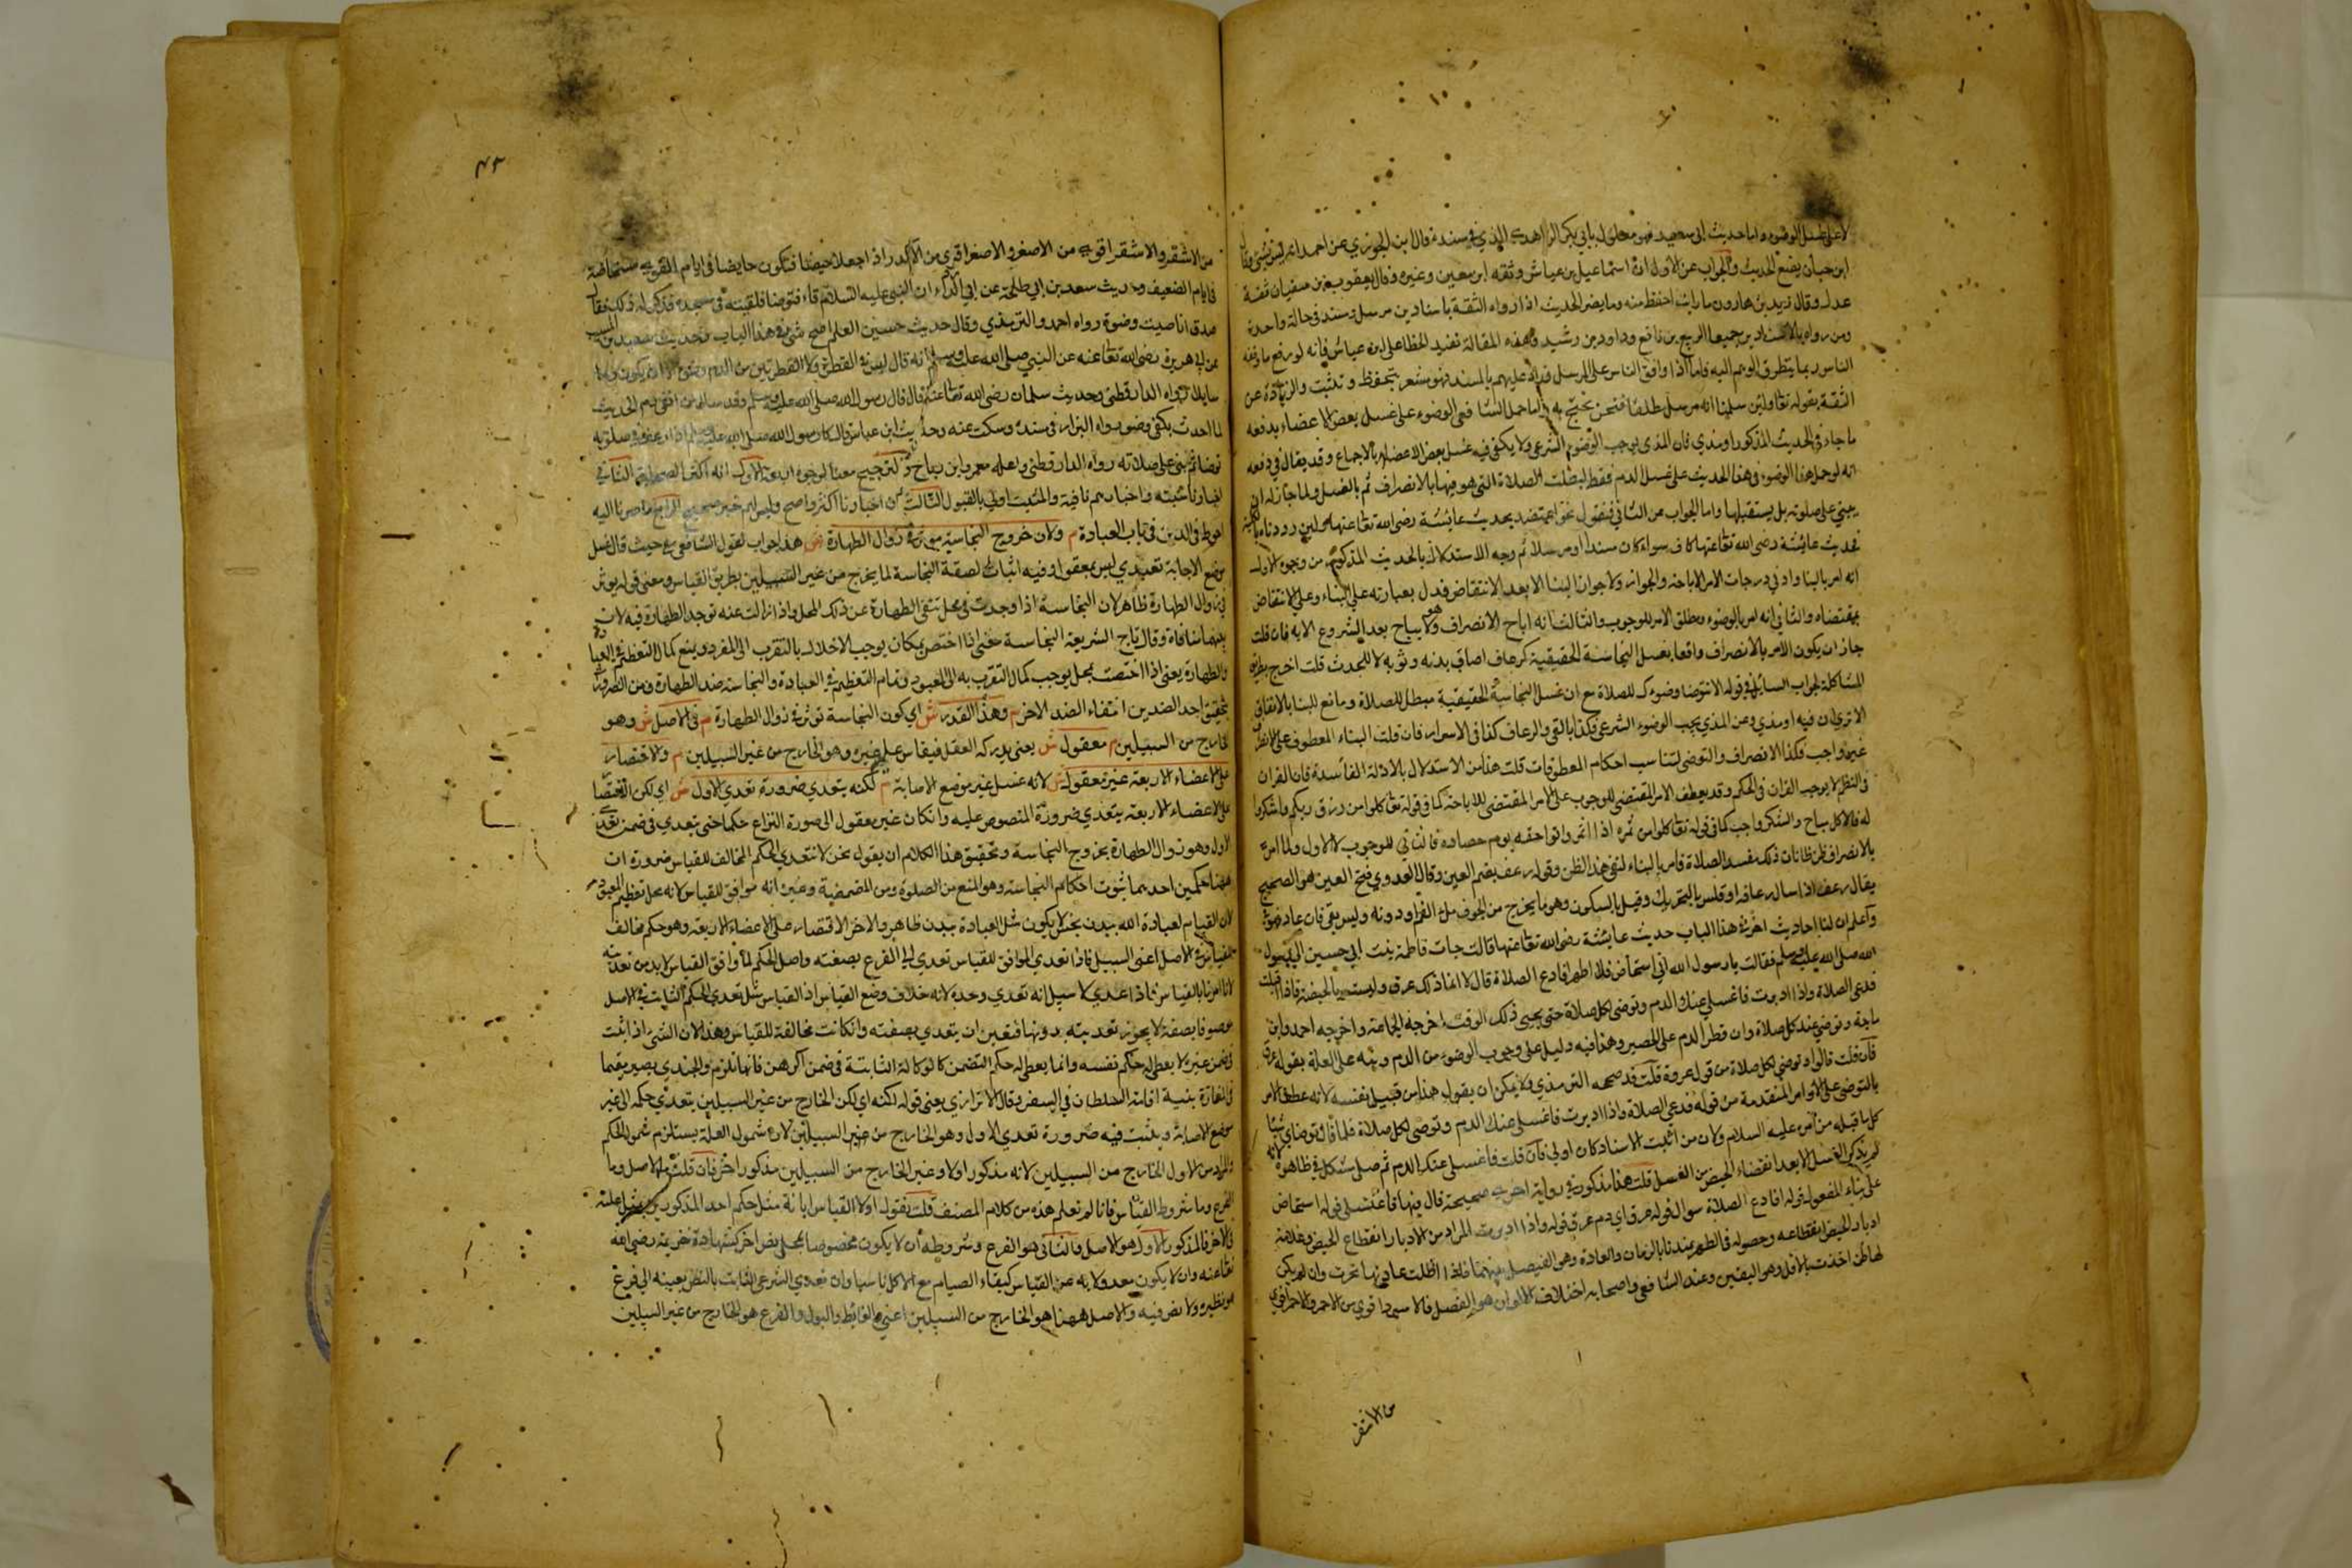 لا على غسل الوضوء واما حديث ابى سعيد فهو معلول بابي بكر الزاهدى الذي في سنده قال ابن الجوزي عن احمد انه ليس بشئ وقال
ابن حبان يضع الحديث والجواب عن الاول ان اسماعيل بن عياش وثقه ابن معين وغيره وقال يعقوب بن سفيان ثقة
عدل وقال يزيد بن هارون ما رايت احفظ منه وما يضر الحديث اذا رواه الثقة باسنادين مرسل ومسند في حالة واحدة
ومن رواه بالاسنادين جميعا الربيع بن نافع وداود بن رشيد وهذه المقالة تفيد الخطا على ابن عياش فانه لو رفع ما وقفه
الناس ربما يتطرق الوهم اليه فاما اذا وافق الناس على المرسل فزاد عليهم بالمسند فهو مشعر بتحفظ وتثبت والزيادة عن
الثقة مقبولة ولئن سلمنا انه مرسل مطلقا فنحن نحتج به واما حمل الشافعى الوضوء على غسل بعض الاعضاء يدفعه
ما جاء في الحديث المذكور او مذي فان المذى يوجب الوضوء الشرعى ولا يكفى فيه غسل بعض الاعضاء بالاجماع وقد يقال في دفعه
انه لو حمل هذا الوضوء في هذا الحديث على غسل الدم فقط لبطلت الصلاة التى هو فيها بالانصراف ثم بالغسل ولما جاز له ان
يبني على صلوته بل يستقبلها واما الجواب عن الثانى فنقول نحن اعتضد بحديث عايشة رضى الله تعا عنها ولئن رددناه بالكلية
فحديث عائشة رضى الله تعا عنها كاف سواء كان مسندا او مرسلا ثم وجه الاستدلال بالحديث المذكور من وجوه الاول
انه امر بالبنا وادنى درجات الامر الاباحة والجواز ولا جواز للبنا الا بعد الانتقاض فدل بعبارته على البناء وعلى الانتقاض
بمقتضاه والثاني انه امر بالوضوء ومطلق الامر للوجوب والثالث انه اباح الانصراف وهو لا يباح بعد الشروع الا به فان قلت
جاز ان يكون الامر بالانصراف واقعا بغسل النجاسة الحقيقية كرعاف اصاب بدنه وثوبه لا للحدث قلت اخرج بطريق
المشاكلة لجواب السائل في قوله الا تتوضا وضوءك للصلاة مع ان غسل النجاسة الحقيقية مبطل للصلاة ومانع للبنا بالاتفاق
الا ترى ان فيه او مذي وعن المذي يجب الوضوء الشرعى فكذا بالقى والرعاف كذا في الاسرار فان قلت البناء المعطوف على الانصراف
غير واجب فكذا الانصراف والتوضى لتناسب احكام المعطوفات قلت هذا من الاستدلال بالادلة الفاسدة فان القران
في النظم لا يوجب القران في الحكم وقد يعطف الامر المقتضى للوجوب على الامر المقتضى للاباحة كما في قوله تعا كلوا من رزق ربكم واشكروا
له فالاكل مباح والشكر واجب كما في قوله تعا كلوا من ثمره اذا اثمر واتوا حقه يوم حصاده فالثاني للوجوب لا الاول ولما امر
بالانصراف ظن ظان ان ذلك مفسد الصلاة فامر بالبناء لنفى هذا الظن وقوله رعف بضم العين وقال العدوي فتح العين هو الصحيح
يقال رعف اذا سال رعافه او قلس بالتحريك وقيل بالسكون وهو ما يخرج من الجوف ملء الفم او دونه وليس بقى فان عاد فهو قئ
واعلم ان لنا احاديث اخر في هذا الباب حديث عايشة رضى الله تعا عنها قالت جات فاطمة بنت ابي حبيش الى رسول
الله صلى الله عليه وسلم فقالت يا رسول الله اني استحاض فلا اطهر افادع الصلاة قال لا انما ذلك عرق وليست بالحيضة فاذا اقبلت
فدعى الصلاة واذا ادبرت فاغسلي عنك الدم وتوضى لكل صلاة حتى يجيى ذلك الوقت اخرجه الجماعة واخرجه احمد وابن
ماجة وتوضي عند كل صلاة وان قطر الدم على الحصير وهذا فيه دليل على وجوب الوضوء من الدم ونبه على العلة بقوله عرق
فان قلت قالوا وتوضى لكل صلاة من قول عروة قلت قد صححه الترمذي ولا يمكن ان يقول هذا من قبيل نفسه لانه عطف الامر
بالتوضى على الاوامر المتقدمة من قوله فدعى الصلاة واذا ادبرت فاغسلى عنك الدم وتوضى لكل صلاة
كل ما قبله من امر عليه السلام ولان من اثبت الاسناد كان اولى فان قلت فاغسلى عنك الدم ثم صلى مشكل في ظاهره لانه
لم يذكر الغسل لا بعد انقضاء الحيض من الغسل قلت هذا مذكور في رواية اخرى صحيحة قال فيها فاغتسلى قوله استحاض
على بناء المفعول قوله افادع الصلاة سوال قوله عرق اي دم عرق قوله واذا ادبرت المراد من الادبار انقطاع الحيض وعلامة
ادبار الحيض انقطاعه وحصوله في الطهر عندنا بالزمان والعادة وهو الفيصل بينهما فاذا اظلت عادتها تحرت وان لم يكن
لها ظن اخذت بالاقل وهو اليقين وعند الشافعى واصحابه اختلاف الالوان هو الفصل فالاسود اقوى من الاحمر والاحمر اقوى
من الاشقر
٤٣
من الاشقر والاشقر اقوى من الاصفر والاصفر اقوى من الاكدر اذا جعلا حيضا فتكون حايضا في ايام القوى مستحاضة
في ايام الضعيف وحديث سعد بن ابي طلحة عن ابي الدرداء ان النبى عليه السلام قاء فتوضا فلقيته في مسجد فذكرت له ذلك فقال
صدق انا صببت وضوءه رواه احمد والترمذي وقال حديث حسين المعلم اصح شئ في هذا الباب وحديث سعيد بن المسيب
عن ابي هريرة رضى الله تعا عنه عن النبي صلى الله عليه وسلم انه قال ليس في القطرة ولا القطرتين من الدم وضوء الا ان يكون دما
سايلا رواه الدارقطنى وحديث سلمان رضى الله تعا عنه قال قال رسول الله صلى الله عليه وسلم وقد سال من انفى دم الحديث
لما احدث يكفى وضوء رواه البزار في مسنده وسكت عنه وحديث ابن عباس قال كان رسول الله صلى الله عليه وسلم اذا رعف في صلوته
توضا ثم بنى على صلاته رواه الدارقطنى واعله بعمر وابن رباح والترجيح معنا لوجوه اربعة الاول انه اكثر الصحابة الثاني
اخبارنا مثبتة واخبارهم نافية والمثبت اولى بالقبول الثالث ان اخبارنا اكثر واصح وليس لهم خبر صحيح الرابع ما صرنا اليه
احوط في الدين في باب العبادة م ولان خروج النجاسة موثر في زوال الطهارة ش هذا جواب لقول الشافعى ع حيث قال غسل
موضع الاصابة تعبدي ليس بمعقول وفيه اثبات لصفة النجاسة لما يخرج من غير السبيلين بطريق القياس ومعنى قوله يوثر
في زوال الطهارة ظاهر لان النجاسة اذا وجدت في محل تنفى الطهارة عن ذلك المحل واذا زالت عنه توجد الطهارة فيه لان
بينهما منافاة وقال تاج الشريعة النجاسة معنى اذا اختص بمكان يوجب الاخلال بالتقرب الى المفرد ويمنع كمال التعظيم في العبادة
والطهارة يعنى اذا اختصت بمحل يوجب كمال التقرب به الى المعبود وتمام التعظيم في العبادة والنجاسة ضد الطهارة ومن الضرورة
تحقيق احد الضدين انتفاء الضد الاخر م وهذا القدر ش اي كون النجاسة توثر في زوال الطهارة م في الاصل ش وهو
الخارج من السبيلين م معقول ش يعنى يدركه العقل فيقاس عليه غيره وهو الخارج من غير السبيلين م والاقتصار
على الاعضاء الاربعة غير معقول ش لانه غسل غير موضع الاصابة م لكنه يتعدي ضرورة تعدي الاول ش اي لكن الاقتصار
على الاعضاء الاربعة يتعدي ضرورة المنصوص عليه وان كان غير معقول الى صورة النزاع حكما حتى تعدي في ضمن تعدي
الاول وهو زوال الطهارة بخروج النجاسة وتحقيق هذا الكلام ان يقول نحن لا نتعدي الحكم المخالف للقياس ضرورة ان
ههنا حكمين احدهما ثبوت احكام النجاسة وهو المنع من الصلوة ومن المضمضة وغيره انه موافق للقياس لانه محل تعظيم المعبود
لان القيام لعبادة الله ببدن نجس لا يكون مثل العبادة ببدن طاهر والاخر الاقتصار على الاعضاء الاربعة وهو حكم مخالف
للقياس في الاصل اعنى السبيل فاذا تعدي الموافق للقياس تعدي الى الفرع بصفته واصل الحكم لما وافق القياس لا بد من تعديته
لانا امرنا بالقياس فاذا عدي لا سبيل انه تعدي وحده لانه خلاف وضع القياس اذ القياس مثل تعدي الحكم الثابت في الاصل
موصوفا بصفة لا يجوز تعديته بدونها فتعين ان يتعدي بصفته وان كانت مخالفة للقياس وهذا لان الشئ اذا ثبت
في ضمن غيره لا يعطى له حكم نفسه وانما يعطى له حكم المتضمن كالوكالة الثابتة في ضمن الرهن فانها تلزم والجندي يصير مقيما
في المفازة بنية اقامة السلطان في السفر وقال الاترازي يعنى قوله لكنه اي لكن الخارج من غير السبيلين يتعدي حكمه الى غير
موضع الاصابة ويثبت فيه ضرورة تعدي الاول وهو الخارج من غير السبيلين لان شمول العلة يستلزم شمول الحكم
والمراد من الاول الخارج من السبيلين لانه مذكور اولا وغير الخارج من السبيلين مذكور اخر فان قلت ما الاصل وما
الفرع وما شروط القياس فانا لم نعلم هذه من كلام المصنف قلت نقول اولا القياس ابانة مثل حكم احد المذكورين بمثل علته
في الاخر فالمذكور الاول هو الاصل والثانى هو الفرع وشروطه ان لا يكون مخصوصا بمحل بنص اخر كشهادة خزيمة رضى الله
تعا عنه وان لا يكون معدولا به عن القياس كبقاء الصيام مع الاكل ناسيا وان تعدي الشرعى الثابت بالنص بعينه الى فرع
هو نظيره ولا نص فيه والاصل ههنا هو الخارج من السبيلين اعني الغائط والبول والفرع هو الخارج من غير السبيلين